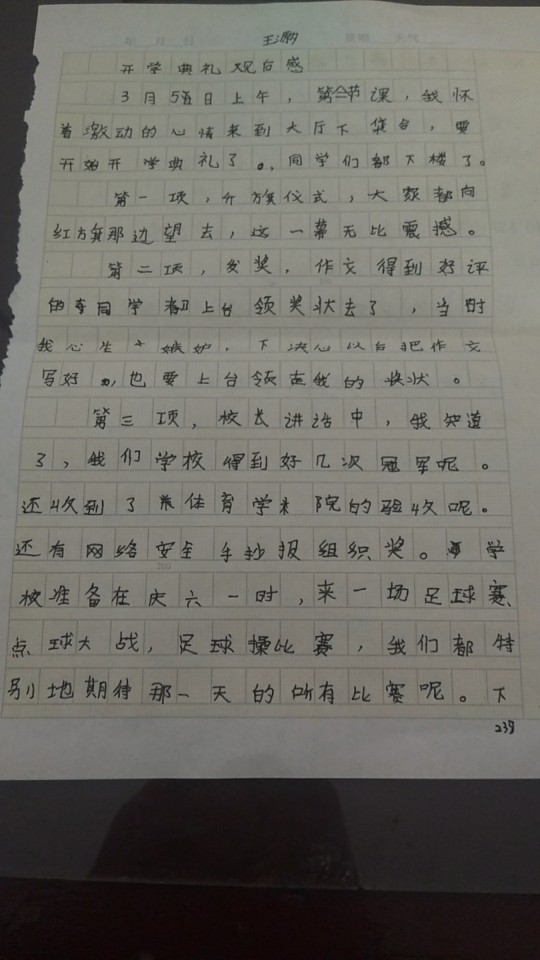 年 月 日 星期 天气
王
开学典礼观后感
3月5日上午,第节课,我怀
着激动的心情来到大厅下集合,要
开始开学典礼了。同学们都下楼了。
第一项,升旗仪式,大家都向
红旗那边望去,这一幕无比震撼。
第二项,发奖,作文得到好评
的同学都上台领奖状去了,当时
我心生嫉妒,下决心以后把作文
写好,也要上台领走我的奖状。
第三项,校长讲话中,我知道
了,我们学校得到好几次冠军呢。
还收到了体育学院的验收呢。
还有网络安全手抄报组织奖。学
校准备在庆六一时,来一场足球赛
点球大战,足球操比赛,我们都特
别地期待那一天的所有比赛呢。下